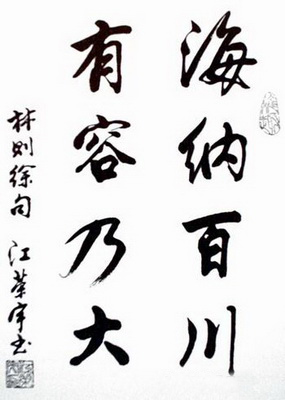 海纳百川
有容乃大
林则徐句 江荣宇书